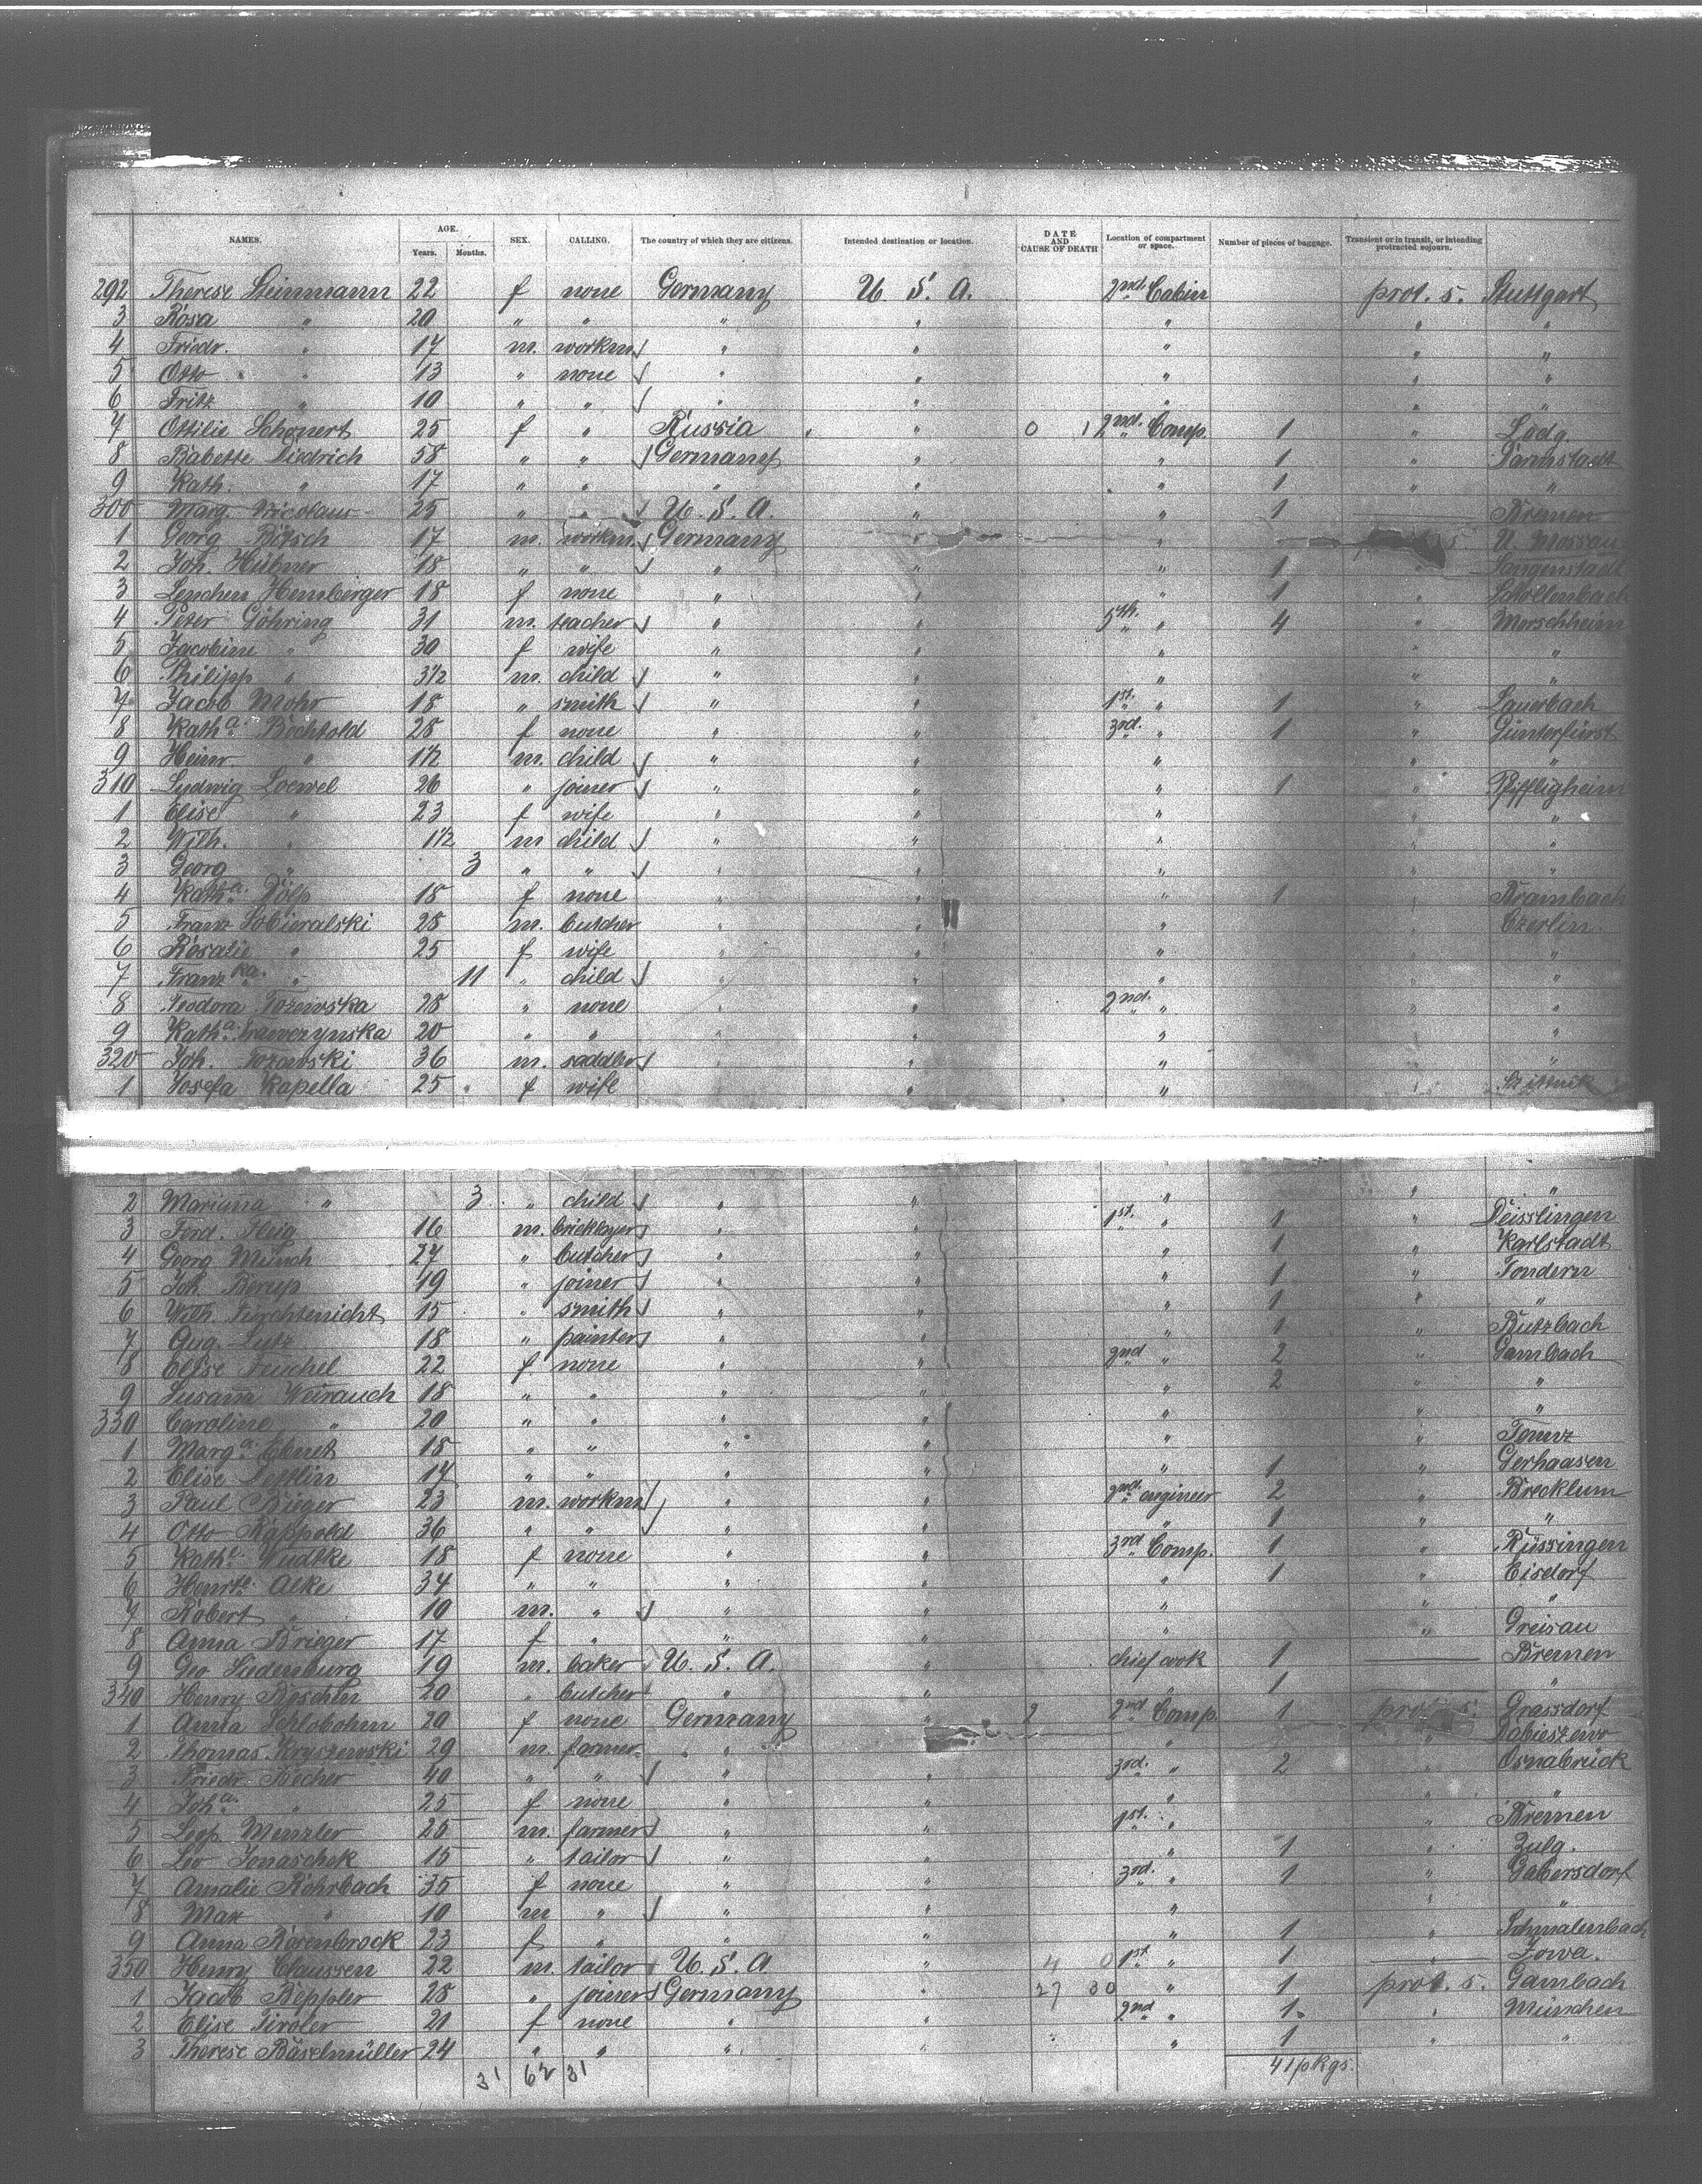 NAMES. AGE. Years. Months. SEX. CALLING. The country of which they are citizens. Intended destination or location. DATE AND CAUSE OF DEATH Location of compartment or space. Number of pieces of baggage. Transient or in transit, or intending protracted sojourn.
292 Therese Steinmann 22 f none Germany U. S. A. 2nd Cabin prot. s. Stuttgart
3 Rosa " 20 " " " " " " "
4 Friedr. " 17 m. workm. " " " " "
5 Otto " 13 " none " " " " "
6 Fritz " 10 " " " " " " "
7 Ottilie Schonert 25 f " Russia " 0 1 2nd Comp. 1 " Lodz.
8 Babette Diedrich 58 " " Germany " " 1 " Darmstadt
9 Kath. " 17 " " " " " 1 " "
300 Marg. Nicolaus 25 " " U. S. A. " " 1 — Bremen
1 Georg Bötsch 17 m. workm. Germany " " U. Mossau
2 Joh. Hübner 18 " " " " " 1 " Langenstadt
3 Lenchen Hemberger 18 f none " " " 1 " Schöllenbach
4 Peter Göhring 31 m. teacher " " 5th. " 4 " Morschheim
5 Jacobine " 30 f wife " " " " "
6 Philipp " 3 1/2 m. child " " " " "
7 Jacob Mohr 18 " smith " " 1st. " 1 " Lauerbach
8 Katha. Bechtold 28 f none " " 3rd. " 1 " Günterfürst
9 Heinr. " 1 1/2 m. child " " " " "
310 Ludwig Loewel 26 " joiner " " " 1 " Pfiffligheim
1 Elise " 23 f wife " " " " "
2 Wilh. " 1 1/2 m child " " " " "
3 Georg " 3 " " " " " " "
4 Katha. Dölp 18 f none " " " 1 " Brambach
5 Franz Sobieralski 28 m. butcher " " " " Czerlin.
6 Rosalie " 25 f wife " " " " "
7 Franzka. " 11 " child " " " " "
8 Teodora 28 " none " " 2nd. " " "
9 Katha. 20 " " " " " " "
320 Joh. 36 m. saddler " " " " "
1 Josefa Kapella 25 f wife " " " "
2 Marianna " 3 " child " " " " "
3 Ferd. Fleig 16 m. bricklayer " " 1st. " 1 " Deisslingen
4 Georg Münch 27 " butcher " " " 1 " Karlstadt
5 Joh. Borup 19 " joiner " " " 1 " Tondern
6 Wilh. Fürchtenicht 15 " smith " " " 1 " "
7 Aug. Lutz 18 " painter " " " 1 " Butzbach
8 Elise Teuchel 22 f none " " 2nd " 2 " Gambach
9 Susann Weirauch 18 " " " " " 2 " "
330 Caroline " 20 " " " " " " "
1 Marga. Ebnet 18 " " " " " "
2 Elise 14 " " " " " 1 " Gerhausen
3 Paul Brieger 23 m. workm " " 2nd. engineer 2 " Brecklum
4 Otto Rappold 36 " " " " " 1 " "
5 Kathe. Wudtke 18 f none " " 3rd Comp. 1 " Rüssingen
6 Henrte. Alke 34 " " " " " 1 " Eisdorf
7 Robert " 10 m. " " " " " "
8 Anna Brieger 17 f " " " " " Greisau
9 Geo Lüdenburg 19 m. baker U. S. A. " chief cook 1 — Bremen
340 Henry Röschen 20 " butcher " " " 1 — "
1 Anna Schlobohm 20 f none Germany " 2 2nd Comp. 1 prot. s. Grassdorf
2 Thomas Kryszewski 29 m. farmer " " " "
3 Friedr. Becher 40 " " " " 3rd. " 2 " Osnabrück
4 Joha. " 25 f none " " " " "
5 Leop. Menzler 25 m. farmer " " 1st. " " Bremen
6 Leo Jonaschek 15 " tailor " " " 1 " Zulg.
7 Amalie Rohrbach 35 f none " " 3rd. " 1 " Gabersdorf
8 Max " 10 m " " " " " "
9 Anna Rosenbrock 23 f " " " " 1 " Schmalenbach
350 Henry Claussen 22 m. tailor U. S. A " 4 0 1st. " 1 — Iowa.
1 Jacob Reppler 28 " joiner Germany " 27 30 " 1 prot. s. Gambach
2 Elise Tiroler 21 f none " " 2nd " 1 " München
3 Therese Bäselmüller 24 " " " " " 1 " "
31 62 31 41 pkgs.